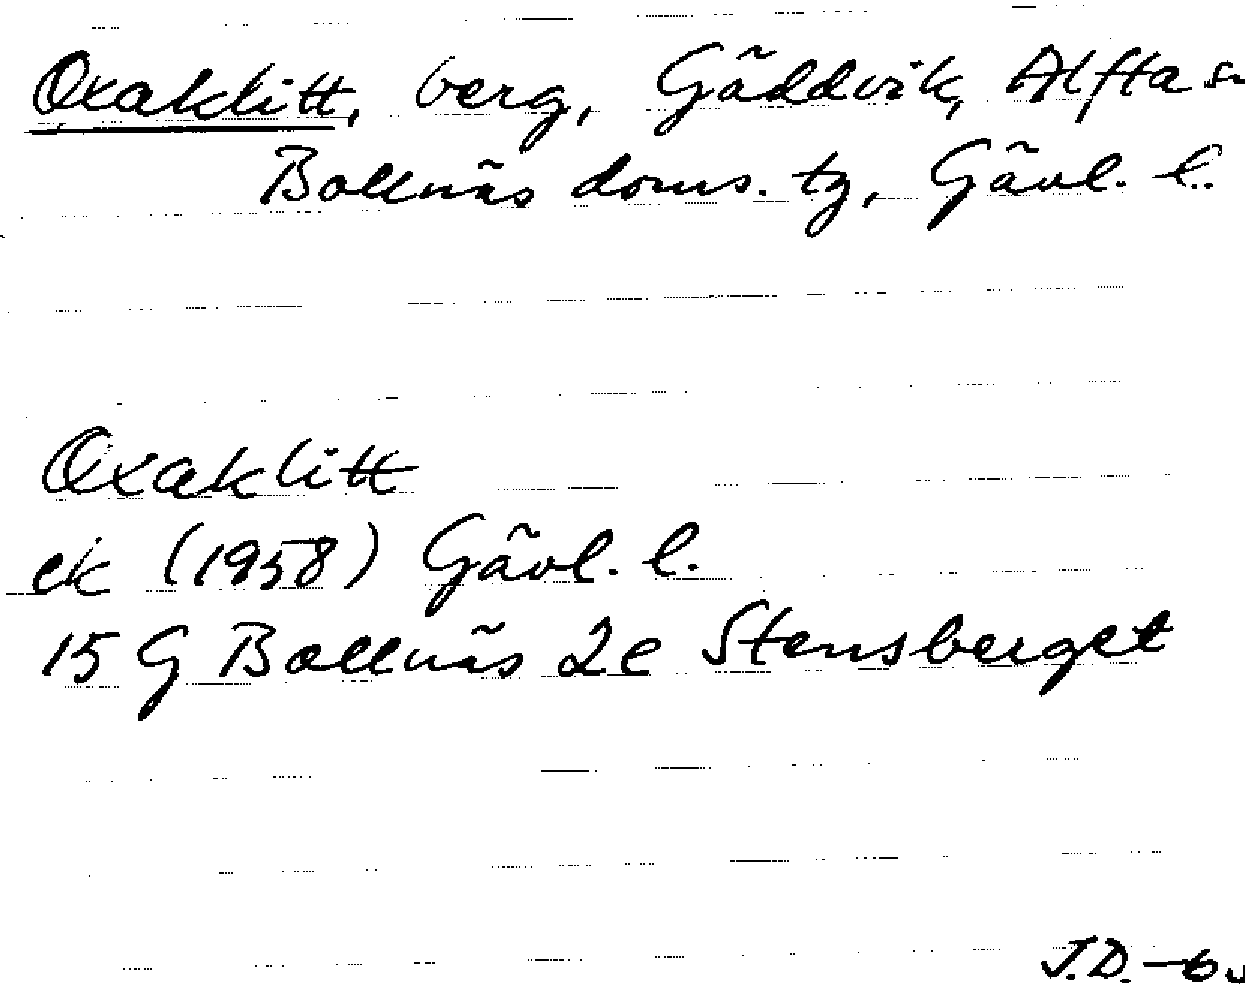 Oxaklitt, berg, Gäddvik, Alfta sn
Bollnäs doms. tg, Gävl. l.
Oxaklitt
ek (1958) Gävl. l.
15 G Bollnäs 2e Stensberget
J.D. -6